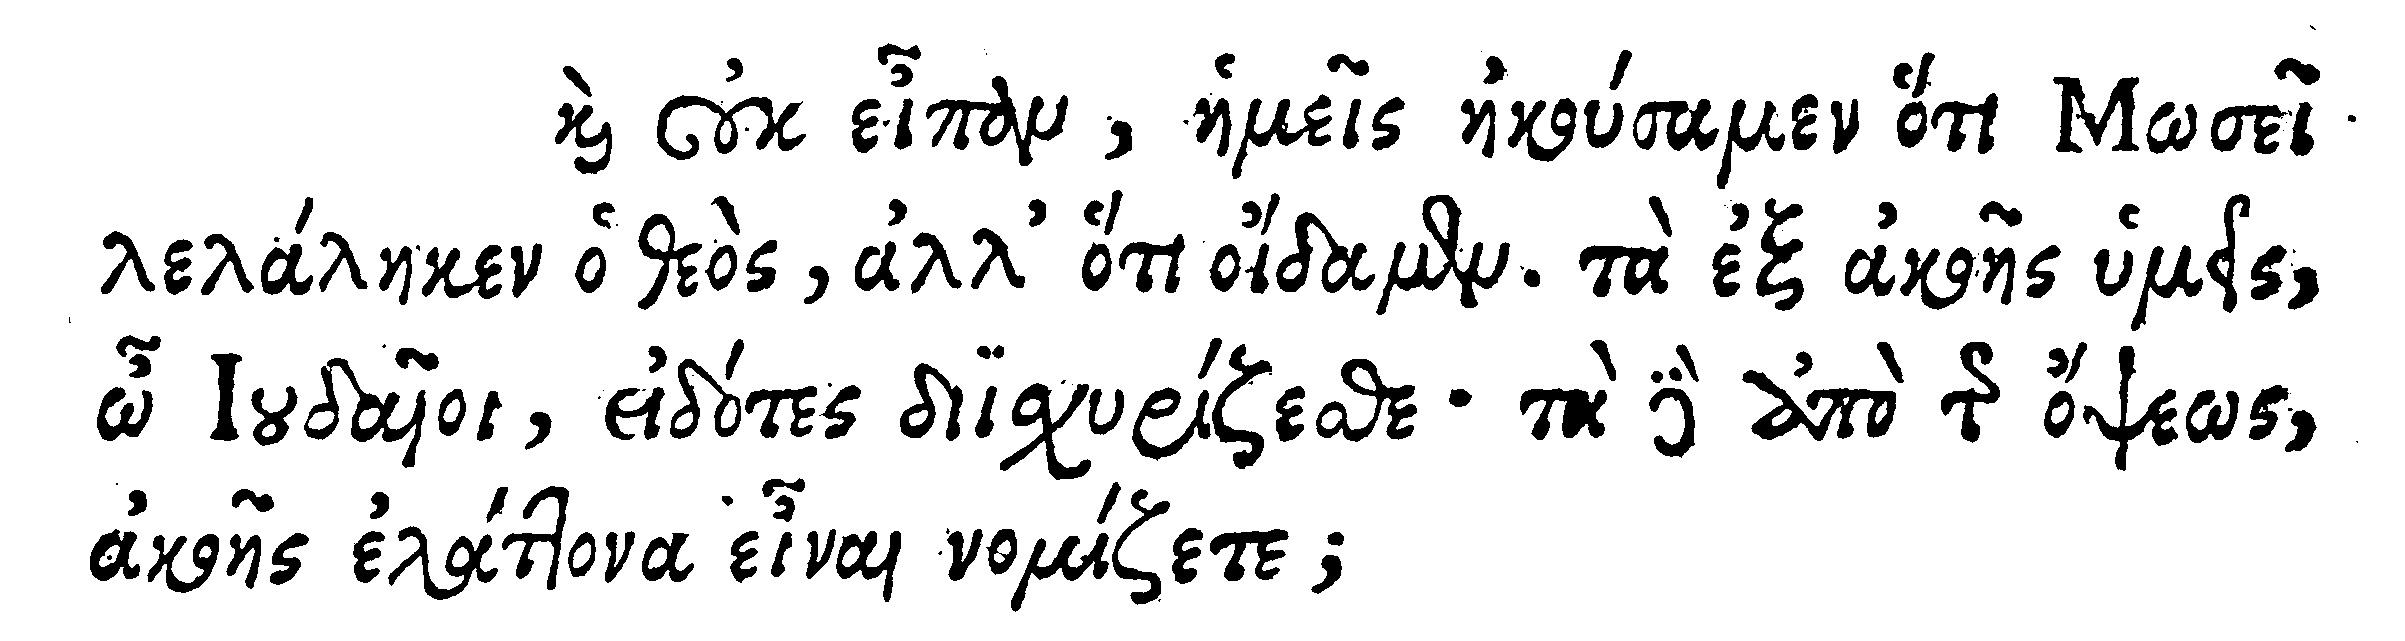 καὶ οὐκ εἶπαν, ἡμεῖς ἠκούσαμεν ὅτι Μωσεῖ
λελάληκεν ὁ θεὸς, ἀλλ’ ὅτι οἴδαμεν. τὰ ἐξ ἀκοῆς ὑμεῖς,
ὦ Ιουδαῖοι, εἰδότες διϊσχυρίζεσθε· τὰ δὲ ἀπὸ τῆς ὄψεως,
ἀκοῆς ἐλάττονα εἶναι νομίζετε;